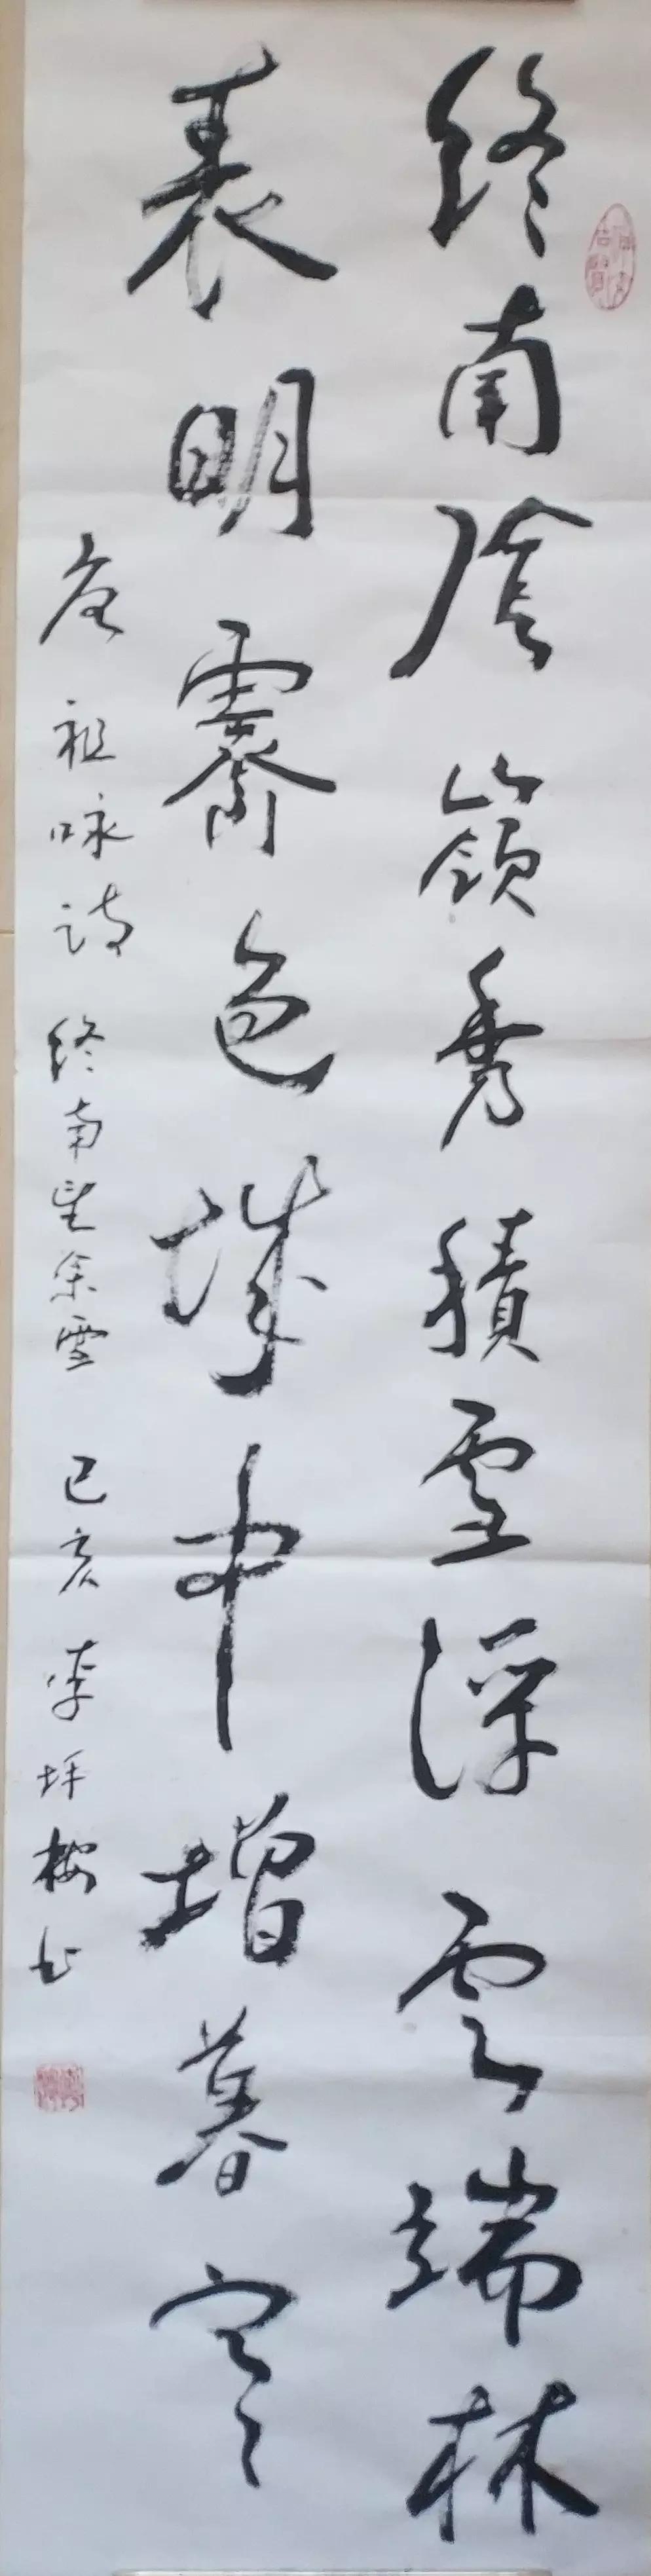 终南阴嶺秀積雪浮云端林
表明霽色城中增暮寒
唐 祖咏诗 终南望余雪 己亥 李坪梅书